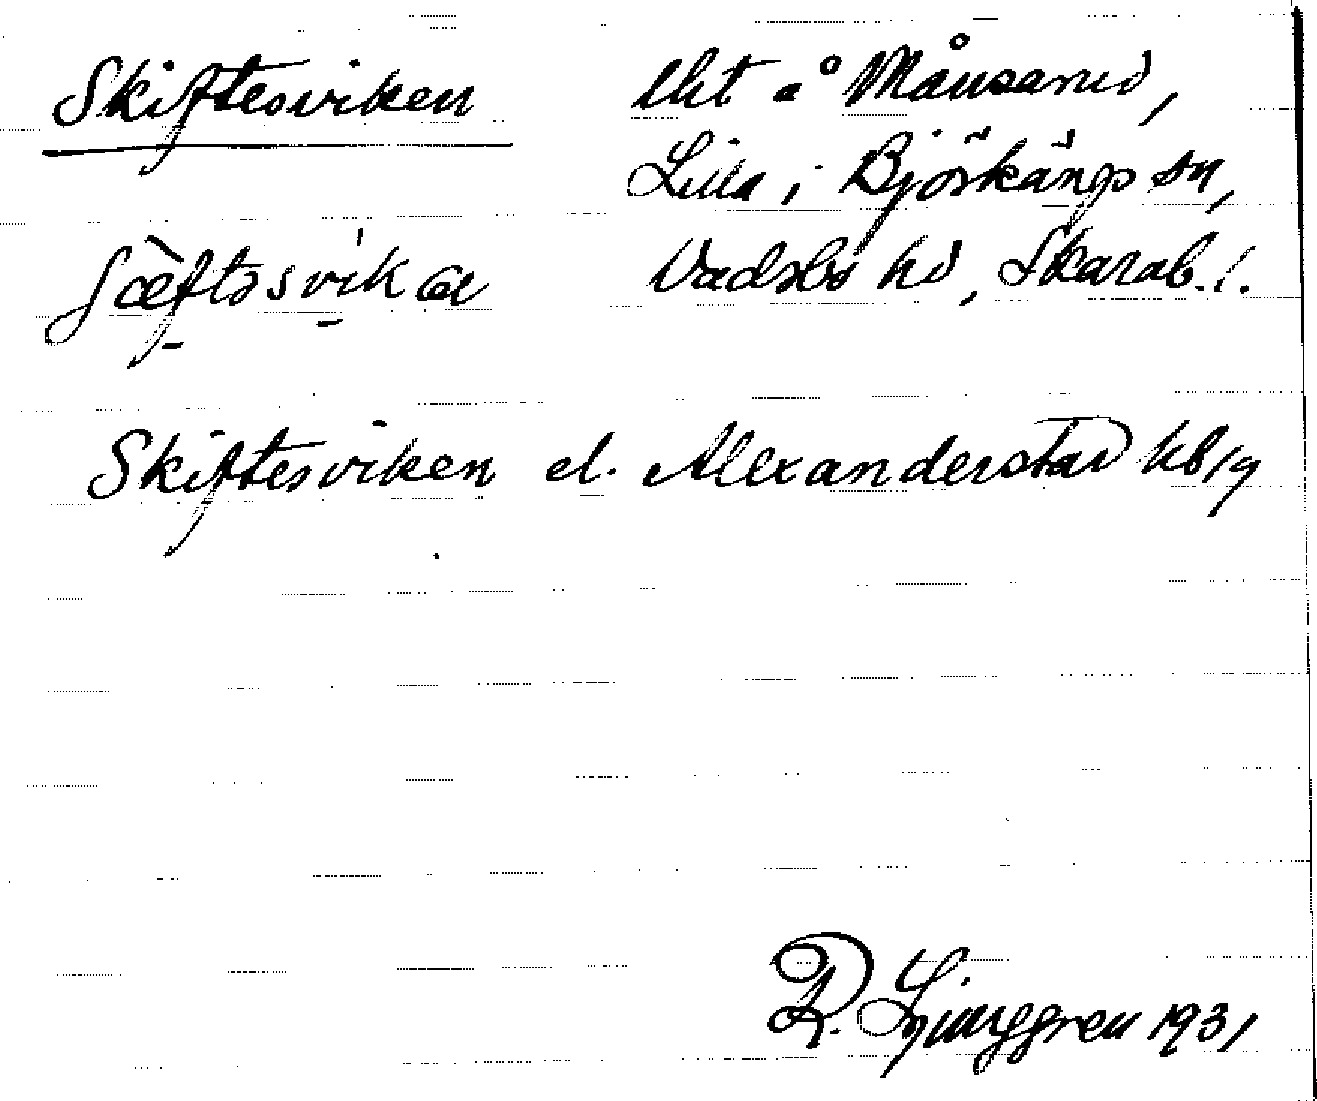 Skiftesviken lht å Månsarud,
Lilla, i Björkängs sn,
Vadsbo hd, Skarab. l.
Skiftesviken el. Alexanderstad kb19
R. Ljunggren 1931